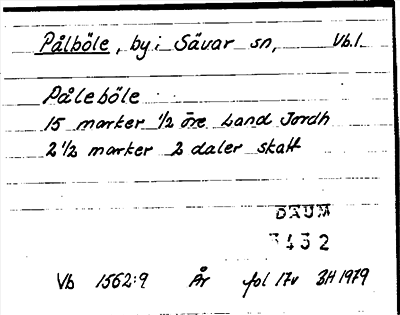 Pålböle, by i Sävar sn, Vb.l.
Påleböle
15 marker 1/2 öre Land Jordh
2 1/2 marker 2 daler skatt
DAUM
3432
Vb 1562:9 År fol 17v BH 1979